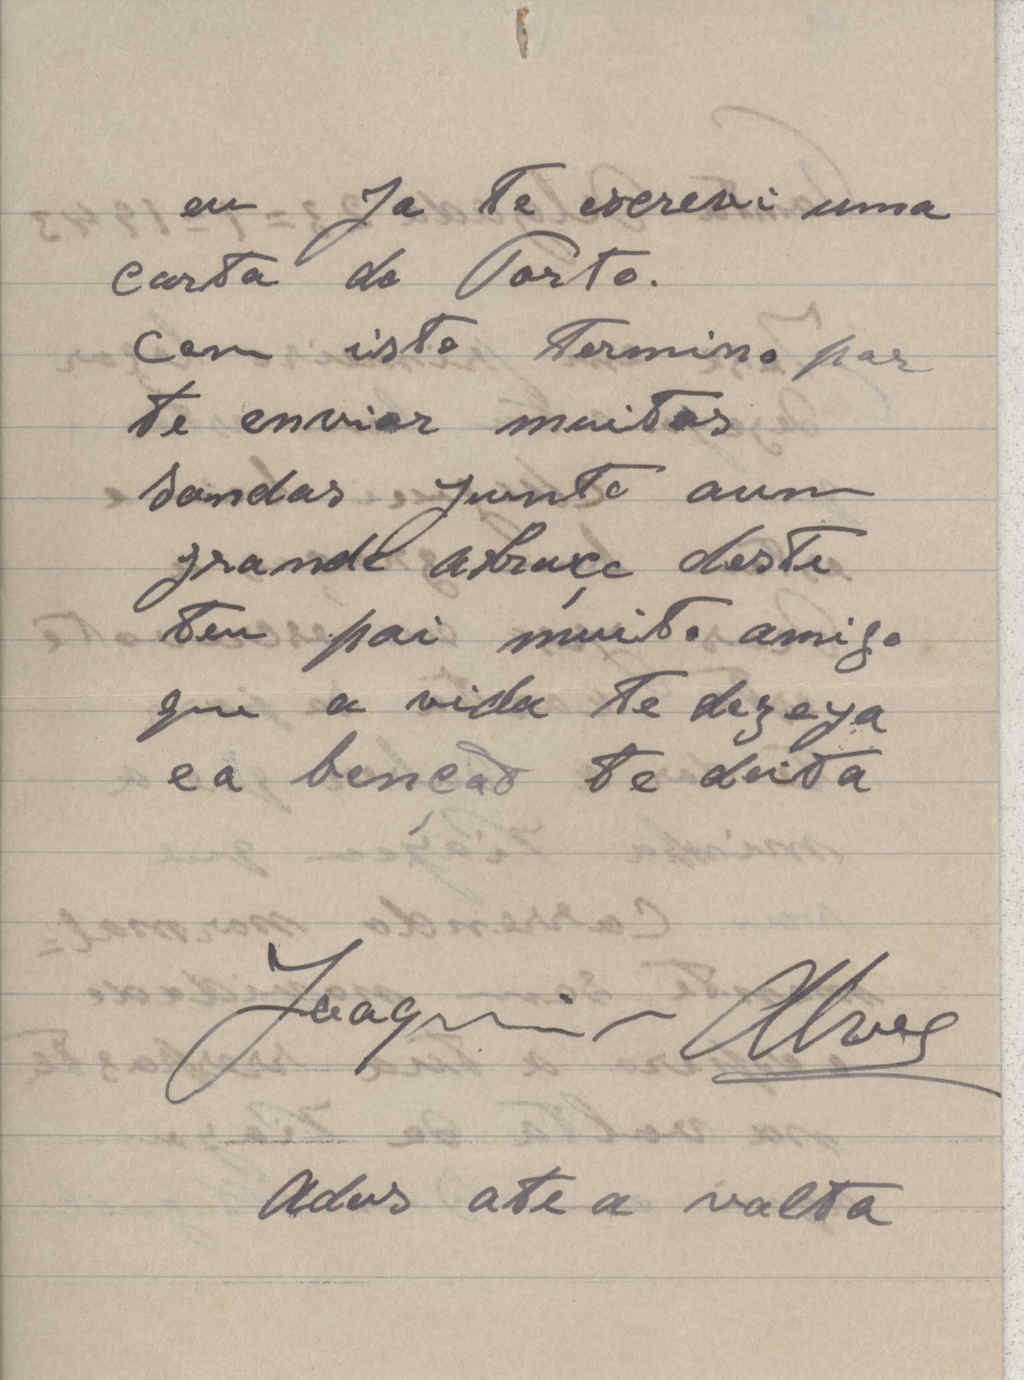 eu Ja te escrevi uma
carta do Porto.
Com isto termino por
te enviar muitas
saudas junto aum
grande abraço deste
teu pai muito amigo
que a vida te dezeya
e a bençaõ te deita
Joaquim Alves
Adus ate a volta